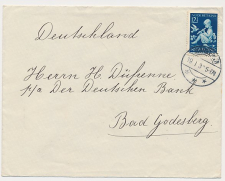 Deutschland
Herrn H Dufrenne
p/a Der Deutschen Bank
Bad Godesberg
12½